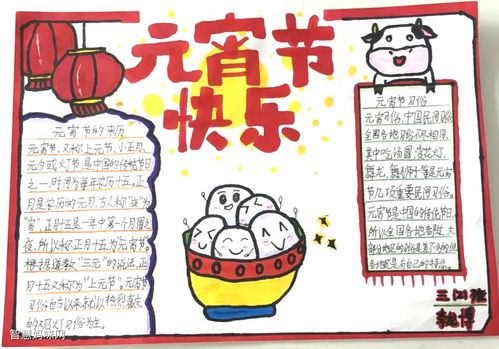 元宵节
快乐
元宵节的来历
元宵节,又称上元节,小正月,
元夕或灯节,是中国的传统节日
之一,时间为每年农历十五。正
月是农历的元月,古人称“夜”为
“宵”,正月十五是一年中第一个月圆之
夜,所以称正月十五为元宵节。
根据道教“三元”的说法,正
月十五又称为“上元节”。元宵节
习俗自古以来就以热烈喜庆
的观灯习俗为主。
元宵节习俗
元宵习俗,中国民间习俗
全国各地习俗不尽相同,
其中吃汤圆、赏花灯、
舞龙、舞狮子等是元宵
节几项重要民间习俗。
元宵节是中国的传统节日,
所以全国各地者陡,大
部分地区的习俗是差不多的,但
各地还是有自己的特点。
三(2)班
智慧妈咪网